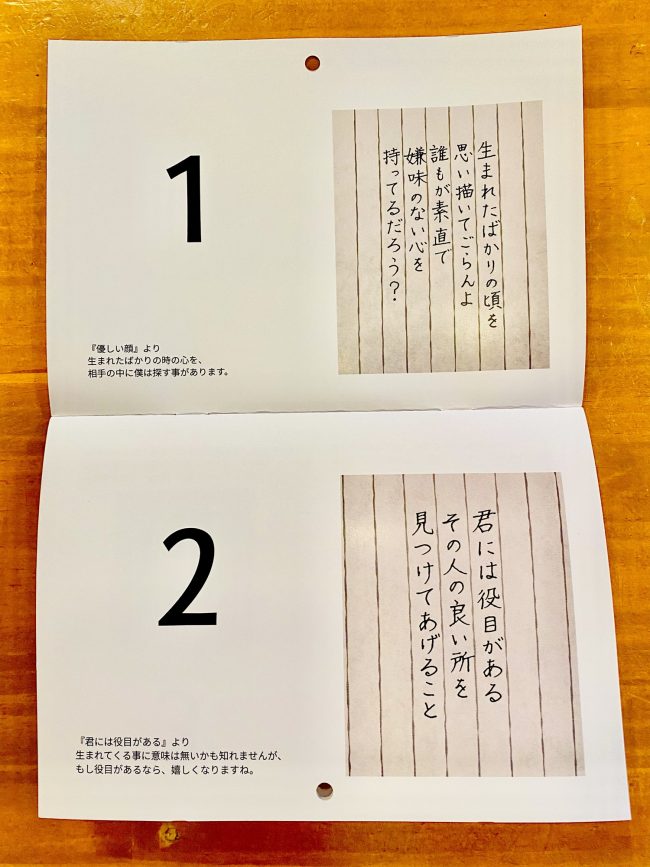 1
生まれたばかりの頃を
思い描いてごらんよ
誰もが素直で
嫌味のない心を
持ってるだろう?
『優しい顔』より
生まれたばかりの時の心を、
相手の中に僕は探す事があります。
2
君には役目がある
その人の良い所を
見つけてあげること
『君には役目がある』より
生まれてくる事に意味は無いかも知れませんが、
もし役目があるなら、嬉しくなりますね。